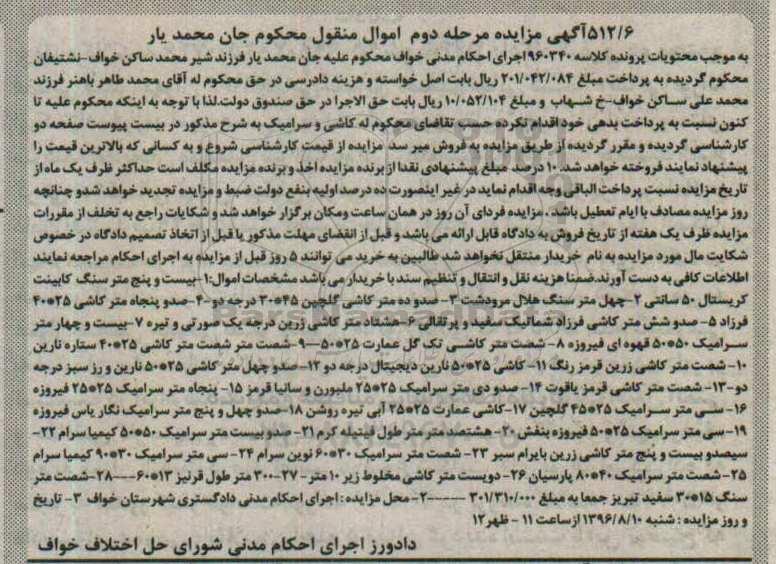 ۵۱۲/۶آگهی مزایده مرحله دوم اموال منقول محکوم جان محمد یار
به موجب محتویات پرونده کلاسه ۹۶۰۳۴۰اجرای احکام مدنی خواف محکوم علیه جان محمد یار فرزند شیر محمد ساکن خواف-نشتیفان
محکوم گردیده به پرداخت مبلغ ۲۰۱/۰۴۲/۰۸۴ ریال بابت اصل خواسته و هزینه دادرسی در حق محکوم له آقای محمد طاهر باهنر فرزند
محمد علی ساکن خواف-خ شهاب و مبلغ ۱۰/۰۵۲/۱۰۴ ریال بابت حق الاجرا در حق صندوق دولت.لذا با توجه به اینکه محکوم علیه تا
کنون نسبت به پرداخت بدهی خود اقدام نکرده حسب تقاضای محکوم له کاشی و سرامیک به شرح مذکور در بیست پیوست صفحه دو
کارشناسی گردیده و مقرر گردیده از طریق مزایده به فروش میر سد مزایده از قیمت کارشناسی شروع و به کسانی که بالاترین قیمت را
پیشنهاد نمایند فروخته خواهد شد.۱۰ درصد مبلغ پیشنهادی نقدا از برنده مزایده اخذ و برنده مزایده مکلف است حداکثر ظرف یک ماه از
تاریخ مزایده نسبت پرداخت الباقی وجه اقدام نماید در غیر اینصورت ده درصد اولیه بنفع دولت ضبط و مزایده تجدید خواهد شدو چنانچه
روز مزایده مصادف با ایام تعطیل باشد ، مزایده فردای آن روز در همان ساعت ومکان برگزار خواهد شد و شکایات راجع به تخلف از مقررات
مزایده ظرف یک هفته از تاریخ فروش به دادگاه قابل ارائه می باشد و قبل از انقضای مهلت مذکور یا قبل از اتخاذ تصمیم دادگاه در خصوص
شکایت مال مورد مزایده به نام خریدار منتقل نخواهد شد طالبین به خرید می توانند ۵ روز قبل از مزایده به اجرای احکام مراجعه نمایند
اطلاعات کافی به دست آورند.ضمنا هزینه نقل و انتقال و تنظیم سند با خریدار می باشد مشخصات اموال:۱-بیست و پنج متر سنگ کابینت
کریستال ۵۰ سانتی ۲-چهل متر سنگ هلال مرودشت ۳- صدو ده متر کاشی گلچین ۴۵*۳۰ درجه دو-۴-صدو پنجاه متر کاشی ۲۵*۴۰
فرزاد ۵- صدو شش متر کاشی فرزاد شماتیک سفید و پرتقالی ۶-هشتاد متر کاشی زرین درجه یک صورتی و تیره ۷-بیست و چهار متر
سرامیک ۵۰*۵۰ قهوه ای فیروزه ۸- شصت متر کاشی تک گل عمارت ۲۵*۵۰---۹-شصت متر شصت متر کاشی ۲۵*۴۰ ستاره نارین
۱۰- شصت متر کاشی زرین قرمز رنگ ۱۱- کاشی ۲۵*۵۰ نارین دیجیتال درجه دو ۱۲-صدو چهل متر کاشی ۲۵*۵۰ نارین و رز سبز درجه
دو-۱۳- شصت متر کاشی قرمز یاقوت ۱۴- صدو دی متر سرامیک ۲۵*۲۵ ملبورن و سانیا قرمز ۱۵- پنجاه متر سرامیک ۲۵*۲۵ فیروزه
۱۶- سی متر سرامیک ۲۵*۴۵ گلچین ۱۷-کاشی عمارت ۲۵*۲۵ آبی تیره روشن ۱۸-صدو چهل و پنج متر سرامیک نگار یاس فیروزه
۱۹-سی متر سرامیک ۲۵*۵۰ فیروزه بنفش ۲۰- هشتصد متر متر طول فیتیله کرم ۲۱- صدو بیست متر سرامیک ۵۰*۵۰ کیمیا سرام ۲۲-
سیصدو بیست و پنج متر کاشی زرین بایرام سبر ۲۳- شصت متر سرامیک ۳۰*۶۰ نوین سرام ۲۴- سی متر سرامیک ۳۰*۹۰ کیمیا سرام
۲۵- شصت متر سرامیک ۴۰*۸۰ پارسیان ۲۶- دویست متر کاشی مخلوط زیر ۱۰ متر-۲۷-۳۰۰ متر طول قرنیز ۱۳*۶۰---۲۸-شصت متر
سنگ ۱۵*۳۰ سفید تبریز جمعا به مبلغ ۳۰۱/۳۱۰/۰۰۰ -----۲- محل مزایده : اجرای احکام مدنی دادگستری شهرستان خواف ۳- تاریخ
و روز مزایده : شنبه ۱۳۹۶/۸/۱۰ ازساعت ۱۱ - ظهر۱۲
دادورز اجرای احکام مدنی شورای حل اختلاف خواف
ParsNamadData